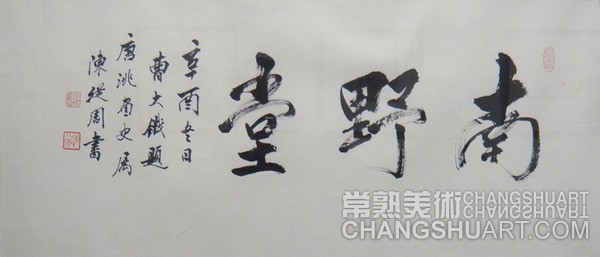 南野堂
辛酉冬日
曹大鐵題
史屬
陳從周書
常熟美術 CHANGSHUART
CHANGSHUART.COM